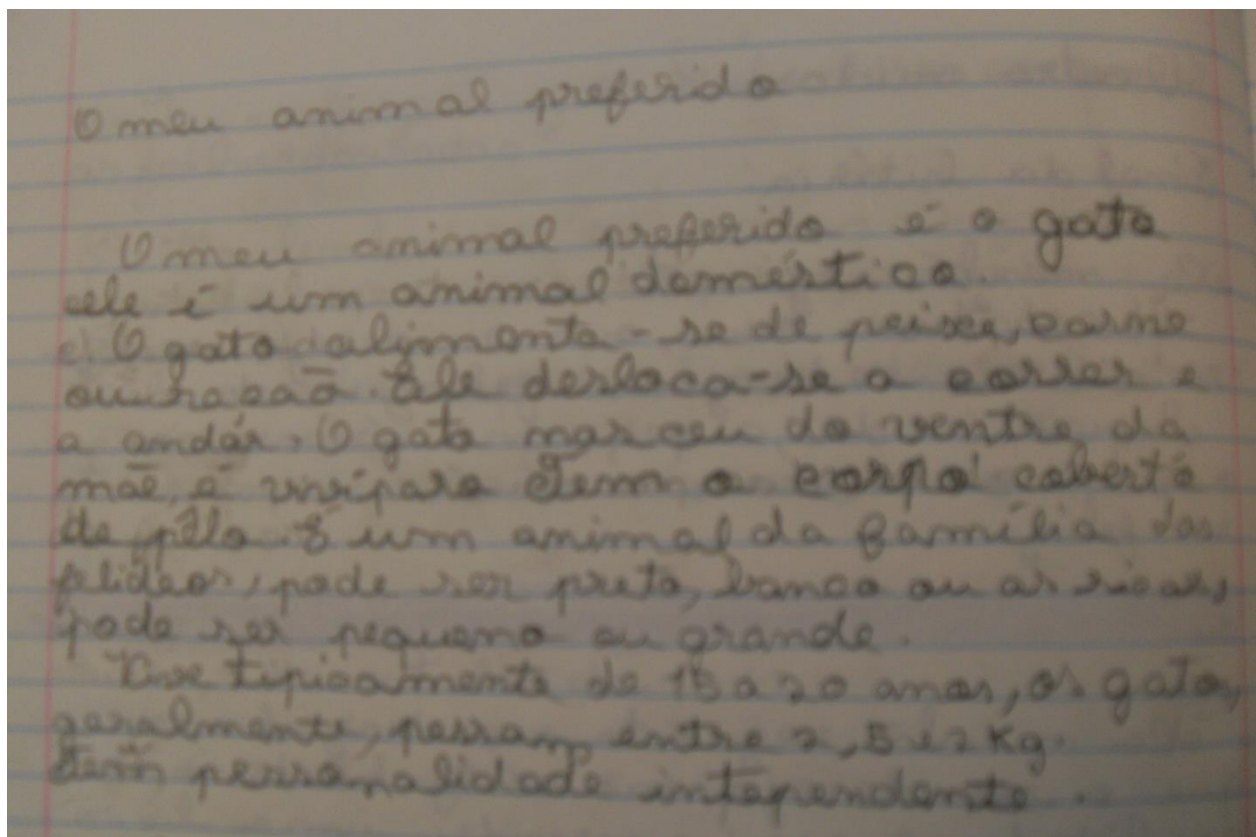 O meu animal preferido
O meu animal preferido é o gato
ele é um animal doméstico.
O gato alimenta-se de peixe, carne
ou racaõ. Ele desloca-se a correr e
a andár. O gato nasceu do ventre da
mãe, é vivíparo Tem o corpo coberto
de pêlo. É um animal da família dos
felideos, pode ser preto, banco ou as riscas,
pode ser pequeno ou grande.
Vive tipicamente de 15 a 20 anos, os gatos,
geralmente, pessam, entre 2,5 e 7 Kg.
Tem personalidade intependente.